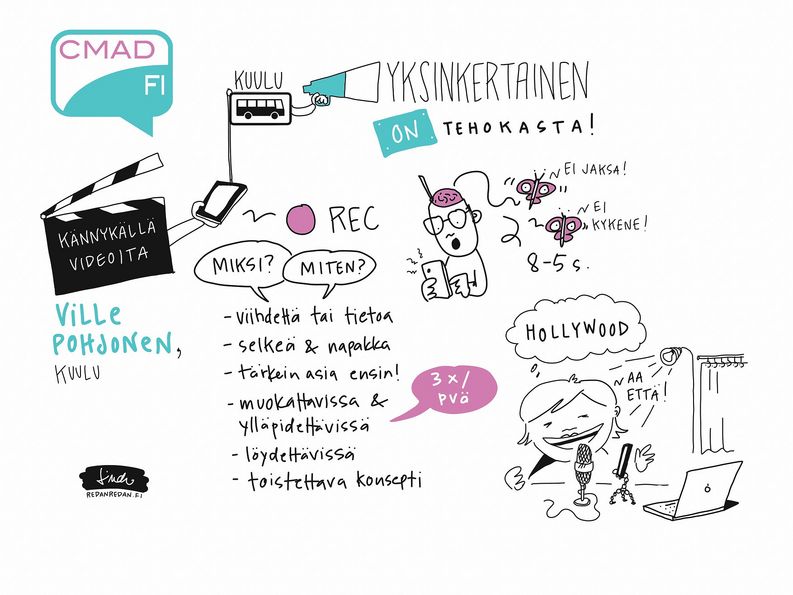 CMAD
FI
KUULU
YKSINKERTAINEN
ON TEHOKASTA!
KÄNNYKÄLLÄ
VIDEOITA
REC
MIKSI?
MITEN?
EI JAKSA!
EI
KYKENE!
8-5 s.
ViLLe
POHJONEN,
KUULU
- viihdettä tai tietoa
- selkeä & napakka
- tärkein asia ensin!
- muokattavissa &
ylläpidettävissä
- löydettävissä
- toistettava konsepti
3x/
PVÄ
HOLLYWOOD
AA
ETTÄ!
REDANREDAN.FI